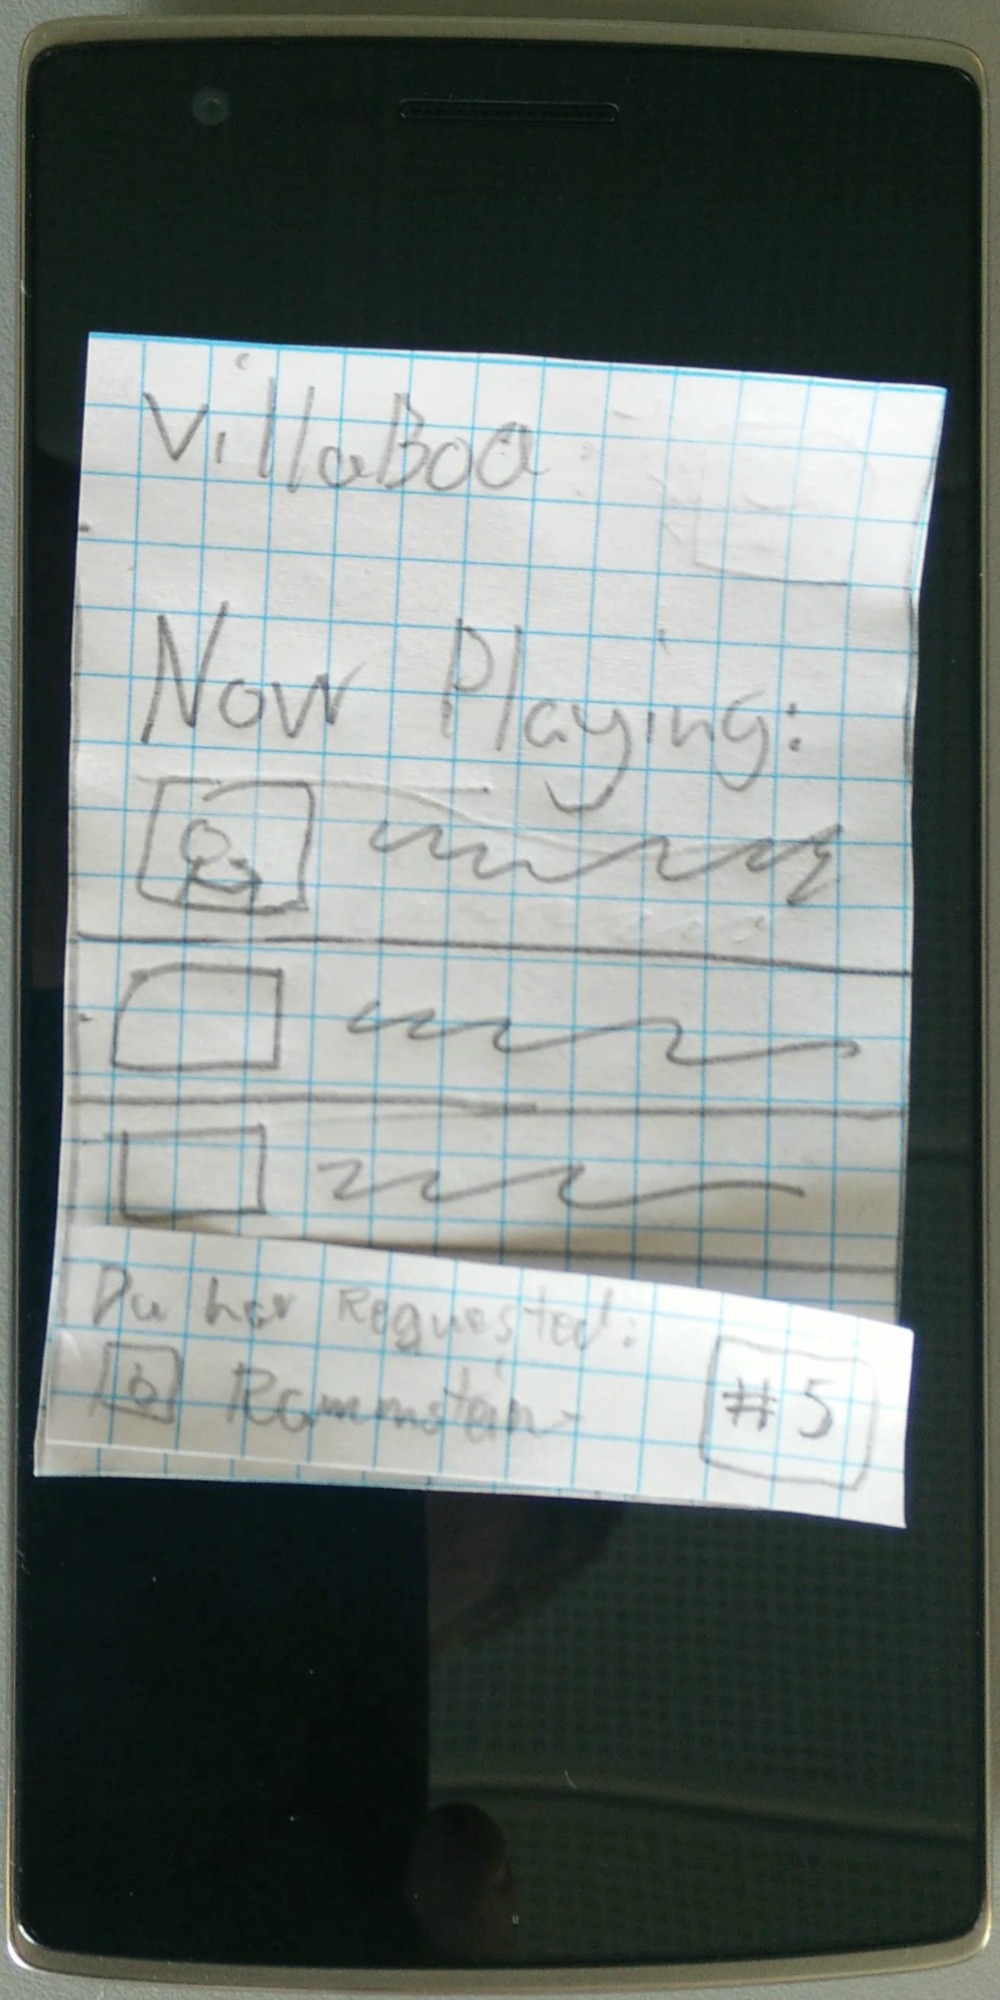 VillaBoa
Now Playing:
Du har Requested:
Rammstein
#5